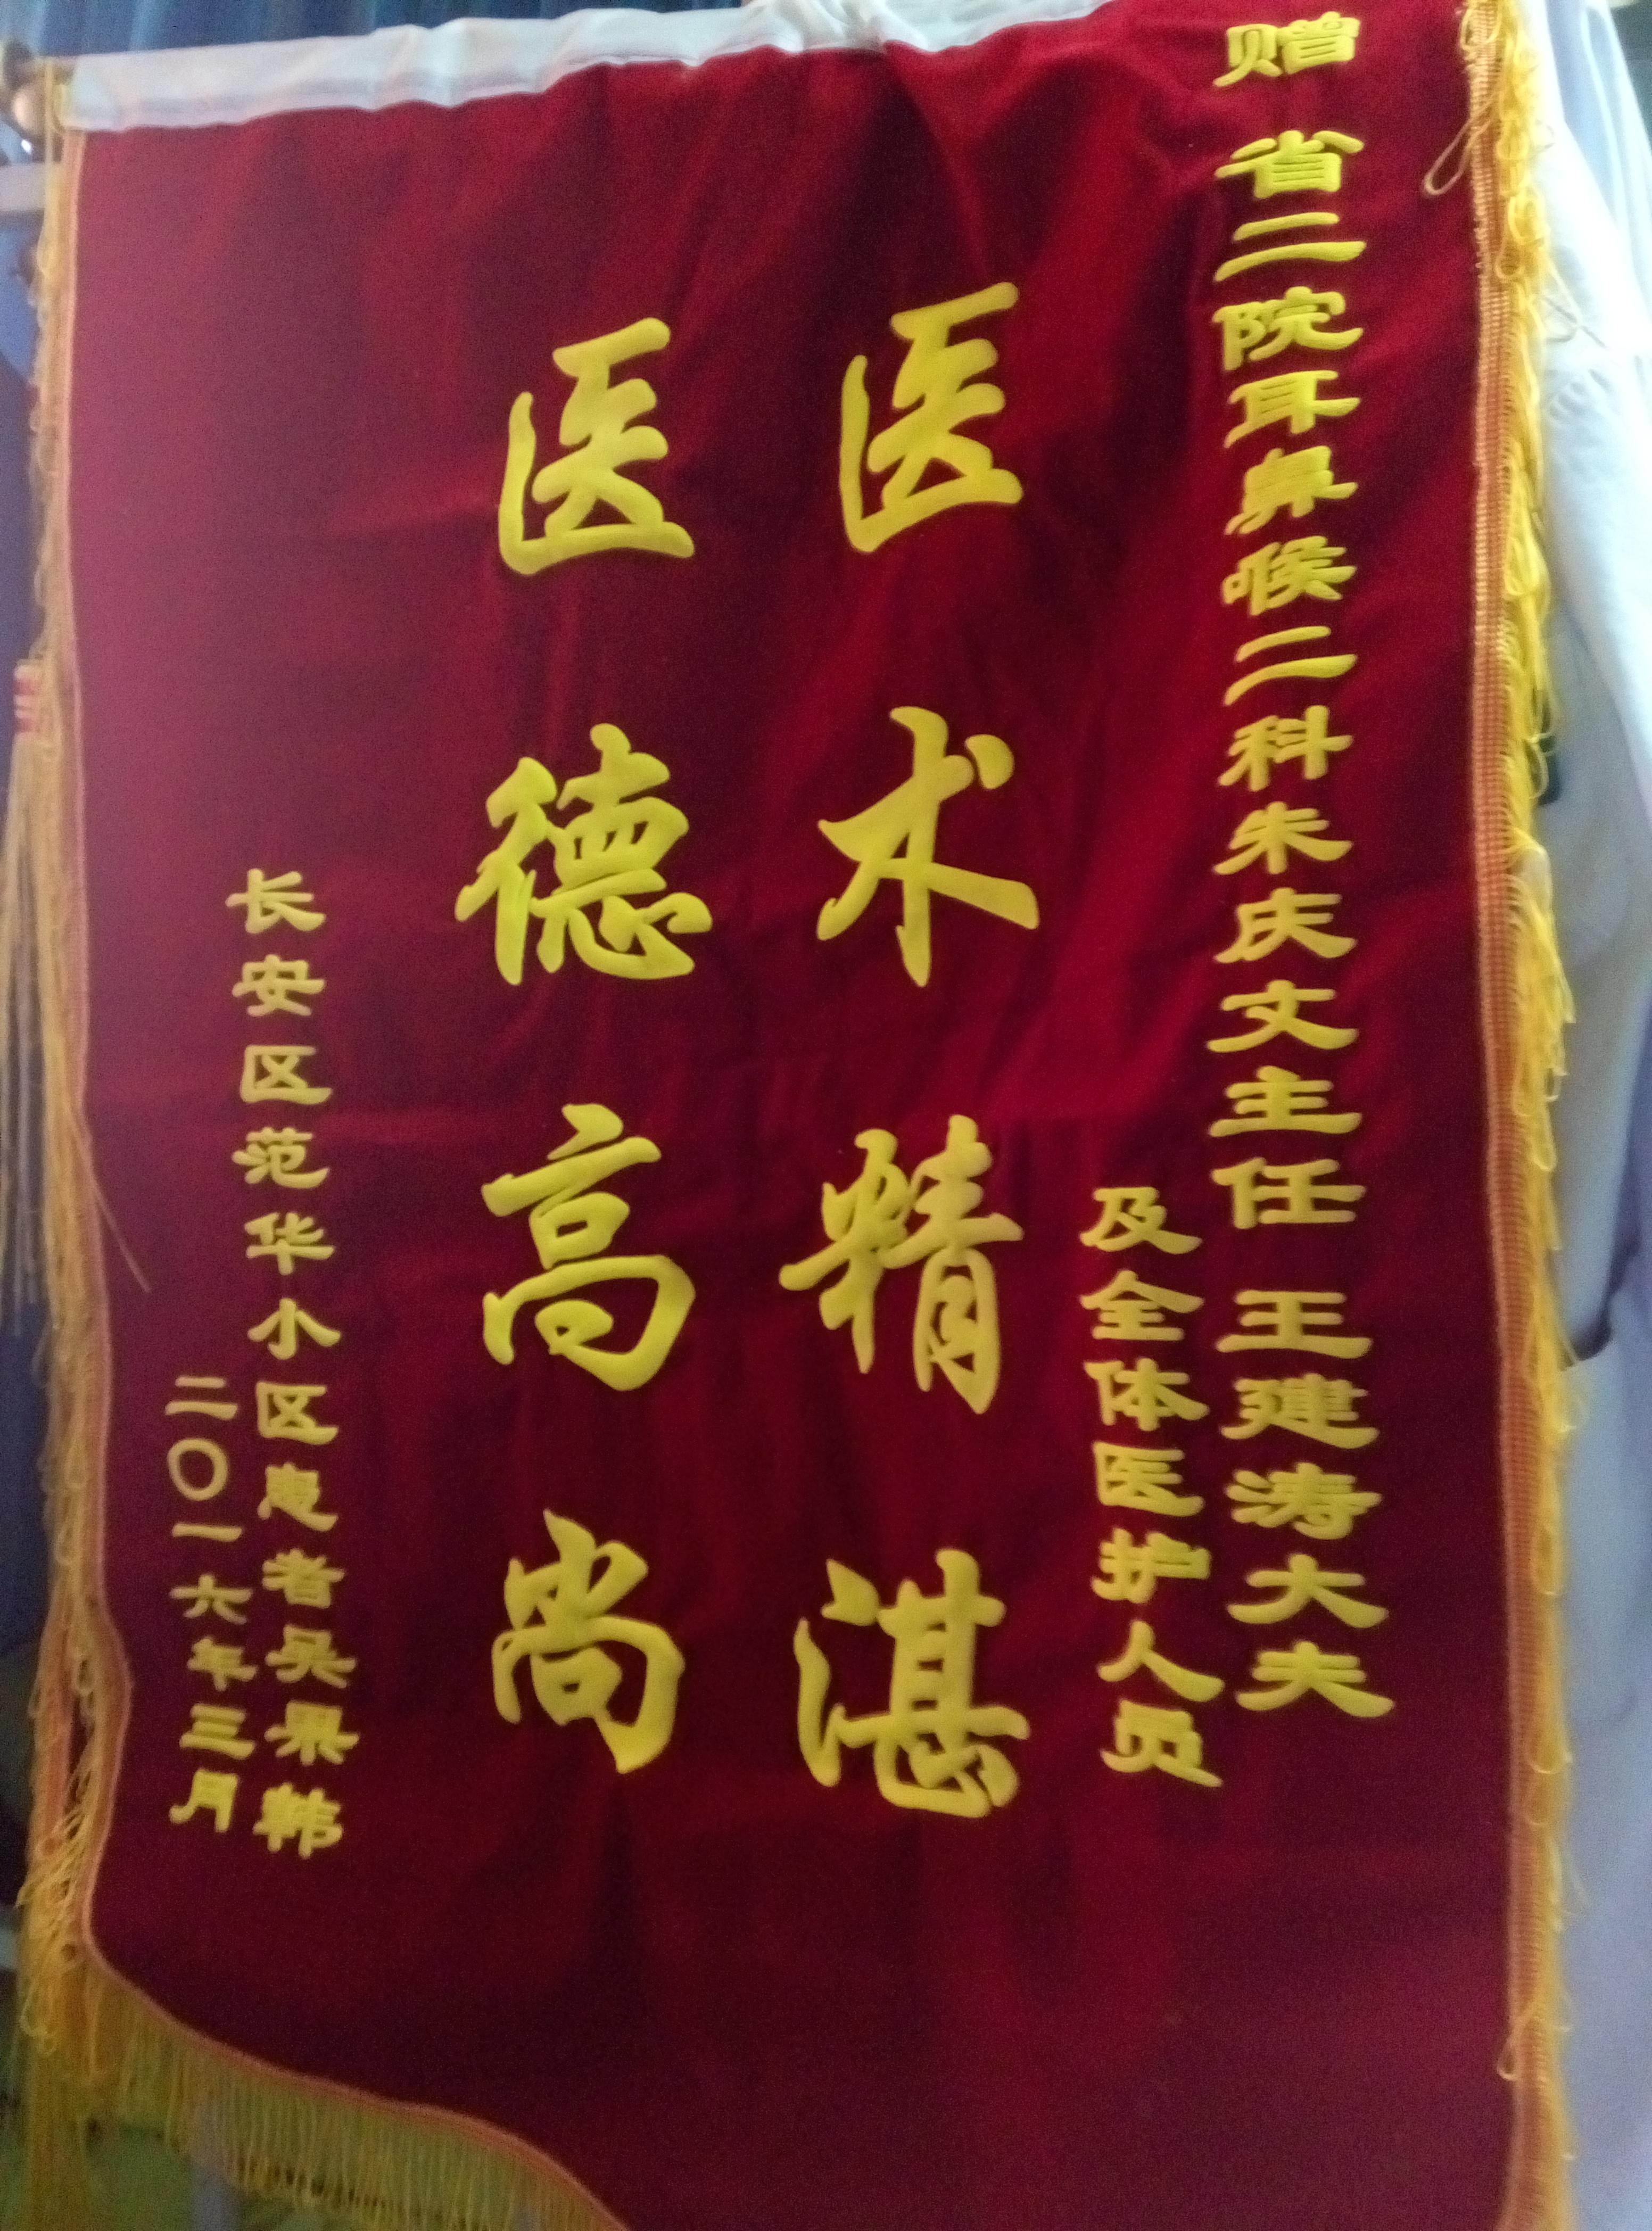 赠 省二院耳鼻喉二科朱庆文主任 王建涛大夫
及全体医护人员
医术精湛
医德高尚
长安区范华小区患者吴果韩
二〇一六年三月